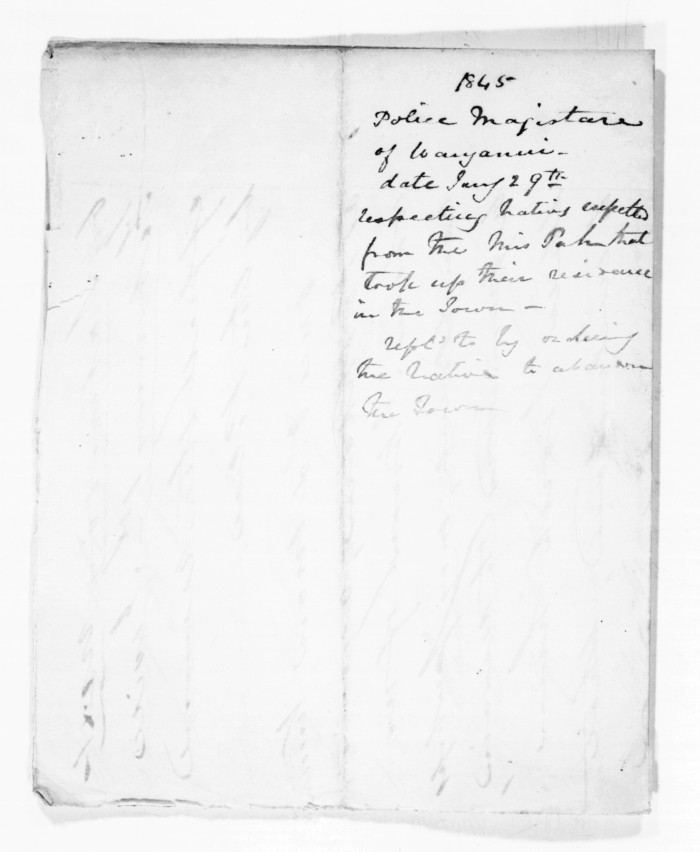 1845
Police Magistare
of Wanganui -
date Jany 29th
respecting Natives
from the Mis Pah that
took up their residence
in the Town -
repld to by ordering
the Native to abandon
the Town